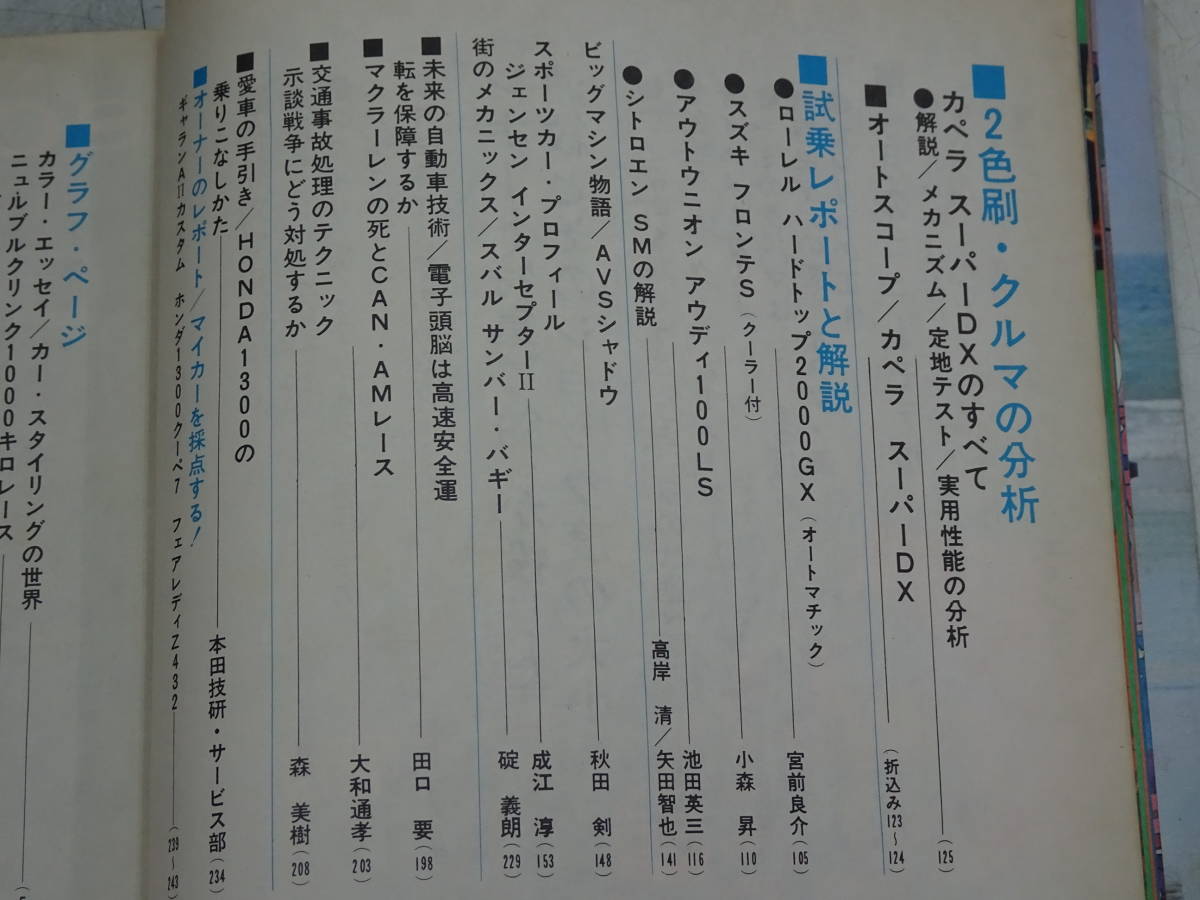 ■2色刷・クルマの分析
カペラ スーパーDXのすべて
●解説/メカニズム/定地テスト/実用性能の分析(125)
■オートスコープ/カペラ スーパーDX(折込み123～124)
■試乗レポートと解説
●ローレル ハードトップ2000GX(オートマチック)宮前良介(105)
●スズキ フロンテS(クーラー付)小森 昇(110)
●アウトウニオン アウディ100LS 池田英三(116)
●シトロエン SMの解説 高岸 清/矢田智也(141)
ビッグマシン物語/AVSシャドウ 秋田 剣(148)
スポーツカー・プロフィール
ジェンセン インターセプターII 成江 淳(153)
街のメカニックス/スバル サンバー・バギー 碇 義朗(229)
■未来の自動車技術/電子頭脳は高速安全運
転を保障するか 田口 要(198)
■マクラーレンの死とCAN・AMレース 大和通孝(203)
■交通事故処理のテクニック
示談戦争にどう対処するか 森 美樹(208)
■愛車の手引き/HONDA1300の
乗りこなしかた 本田技研・サービス部(234)
■オーナーのレポート/マイカーを採点する!
ギャランAIIカスタム ホンダ1300クーペ7 フェアレディZ432(239～243)
■グラフ・ページ
カラー・エッセイ/カー・スタイリングの世界
ニュルブルクリンク1000キロレース